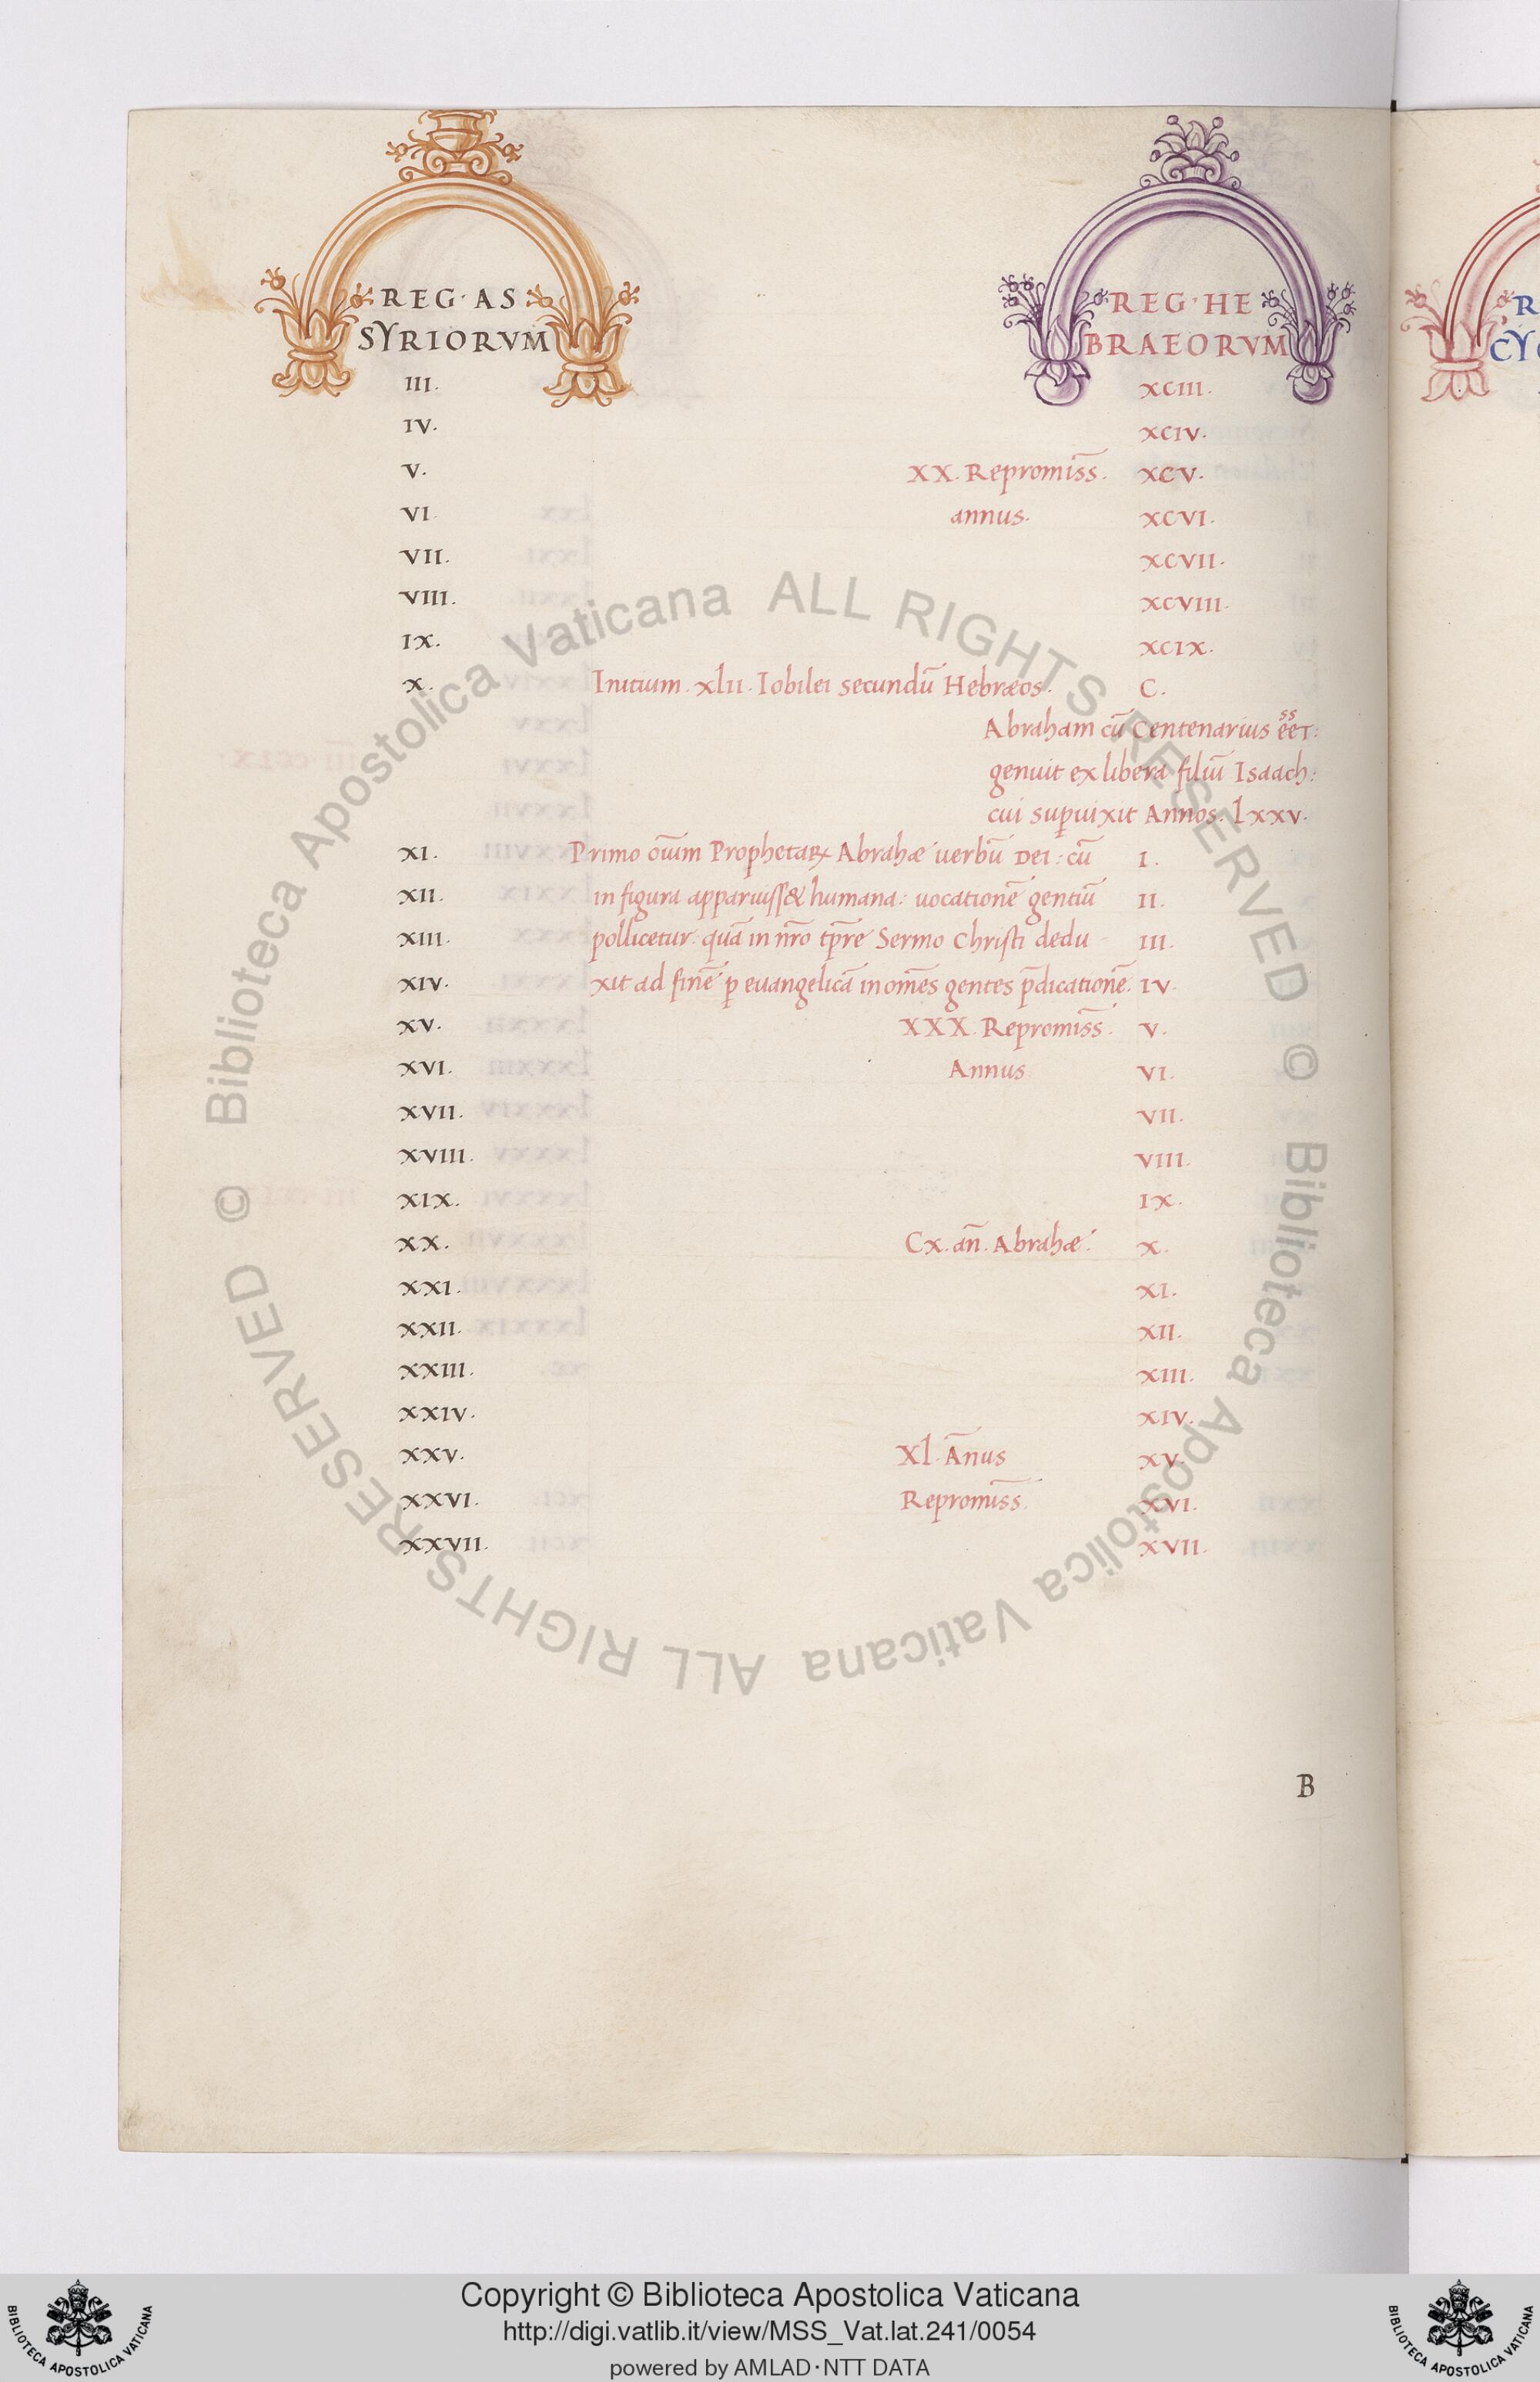 REG·AS
SYRIORVM
REG·HE
BRAEORVM
III. XCIII.
IV. XCIV.
V. XX. Repromis̄s. XCV.
VI annus. XCVI.
VII. XCVII.
VIII. XCVIII.
IX. XCIX.
X. Initium. xlii. Iobilei secundū Hebræos. C.
Abraham cū Centenarius eēt:
ss
genuit ex libera filiū Isaach:
cui sup̱uixit Annos. lxxv.
XI. Primo oīum Prophetaꝝ Abrahæ uerbū Dei: cū I.
XII. in figura apparuiss& humana: uocationē gentiū II.
XIII. pollicetur: quā in nr̄o tp̄re Sermo Christi dedu- III.
XIV. xit ad finē p̱ euangelicā in om̄es gentes p̄dicationē. IV.
XV. XXX. Repromis̄s. V.
XVI. Annus VI.
XVII. VII.
XVIII. VIII.
XIX. IX.
XX. Cx. an̄. Abrahæ. X.
XXI. XI.
XXII. XII.
XXIII. XIII.
XXIV. XIV.
XXV. Xl. Ānus XV.
XXVI. Repromis̄s. XVI.
XXVII. XVII.
B
R
CY
© Biblioteca Apostolica Vaticana ALL RIGHTS RESERVED © Biblioteca Apostolica Vaticana ALL RIGHTS RESERVED
Copyright © Biblioteca Apostolica Vaticana
http://digi.vatlib.it/view/MSS_Vat.lat.241/0054
powered by AMLAD·NTT DATA
BIBLIOTECA APOSTOLICA VATICANA
BIBLIOTECA APOSTOLICA VATICANA